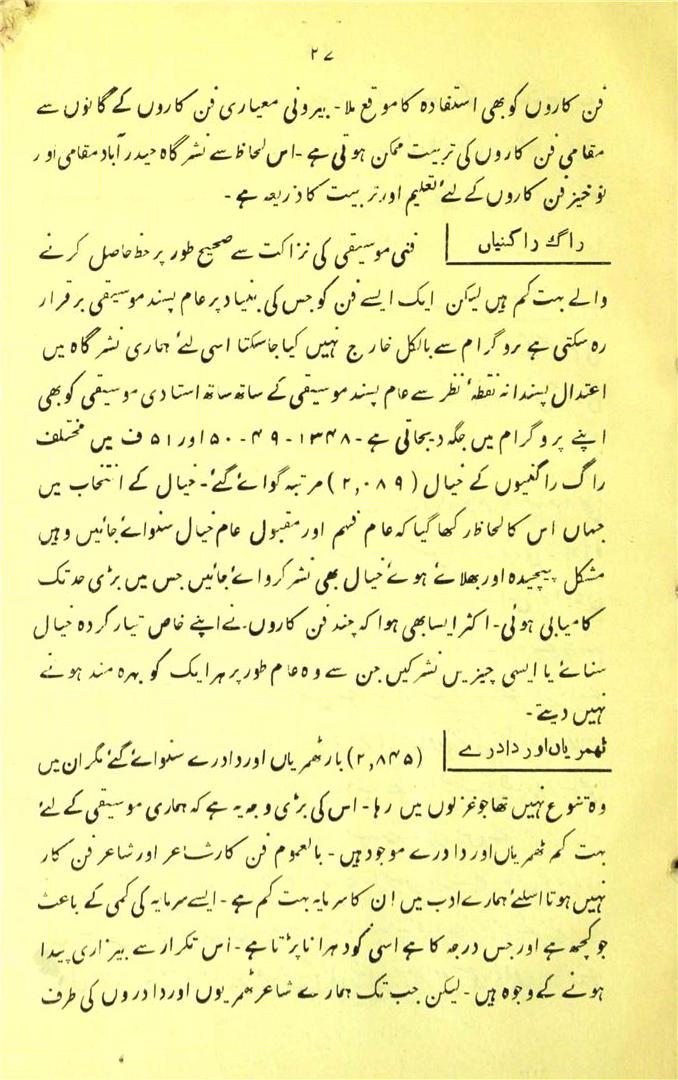 ۲۷
فن کاروں کو بھی استفادہ کا موقع ملا۔ بیرونی معیاری فن کاروں کے گانوں سے
مقامی فن کاروں کی تربیت ممکن ہوتی ہے۔ اس لحاظ سے نشر گاہ حیدرآباد مقامی اور
نوخیز فن کاروں کے لئے تعلیم اور تربیت کا ذریعہ ہے۔
راگ راگنیاں
فنی موسیقی کی نزاکت سے صحیح طور پر حظ حاصل کرنے
والے بہت کم ہیں لیکن ایک ایسے فن کو جس کی بنیاد پر عام پسند موسیقی برقرار
رہ سکتی ہے پروگرام سے بالکل خارج نہیں کیا جاسکتا اسی لئے ہماری نشر گاہ میں
اعتدال پسندانہ نقطۂ نظر سے عام پسند موسیقی کے ساتھ ساتھ استادی موسیقی کو بھی
اپنے پروگرام میں جگہ دیجاتی ہے۔ ۱۳۴۸۔ ۴۹۔ ۵۰ اور ۵۱ ف میں مختلف
راگ راگنیوں کے خیال (۲,۰۸۹) مرتبہ گوائے گئے۔ خیال کے انتخاب میں
جہاں اس کا لحاظ رکھا گیا کہ عام فہم اور مقبول عام خیال سنوائے جائیں وہیں
مشکل پیچیدہ اور بھلائے ہوئے خیال بھی نشر کروائے جائیں جس میں بڑی حد تک
کامیابی ہوئی۔ اکثر ایسا بھی ہوا کہ چند فن کاروں نے اپنے خاص تیار کردہ خیال
سنائے یا ایسی چیزیں نشر کیں جن سے وہ عام طور پر ہر ایک کو بہرہ مند ہونے
نہیں دیتے۔
ٹھمریاں اور دادرے
(۲,۸۴۵) بار ٹھمریاں اور دادرے سنوائے گئے مگر ان میں
وہ تنوع نہیں تھا جو غزلوں میں رہا۔ اس کی بڑی وجہ یہ ہے کہ ہماری موسیقی کے لئے
بہت کم ٹھمریاں اور دادرے موجود ہیں۔ بالعموم فن کار شاعر اور شاعر فن کار
نہیں ہوتا اسلئے ہمارے ادب میں ان کا سرمایہ بہت کم ہے۔ ایسے سرمایہ کی کمی کے باعث
جو کچھ ہے اور جس درجہ کا ہے اسی کو دہرانا پڑتا ہے۔ اس تکرار سے بیزاری پیدا
ہونے کے وجوہ ہیں۔ لیکن جب تک ہمارے شاعر ٹھمریوں اور دادروں کی طرف